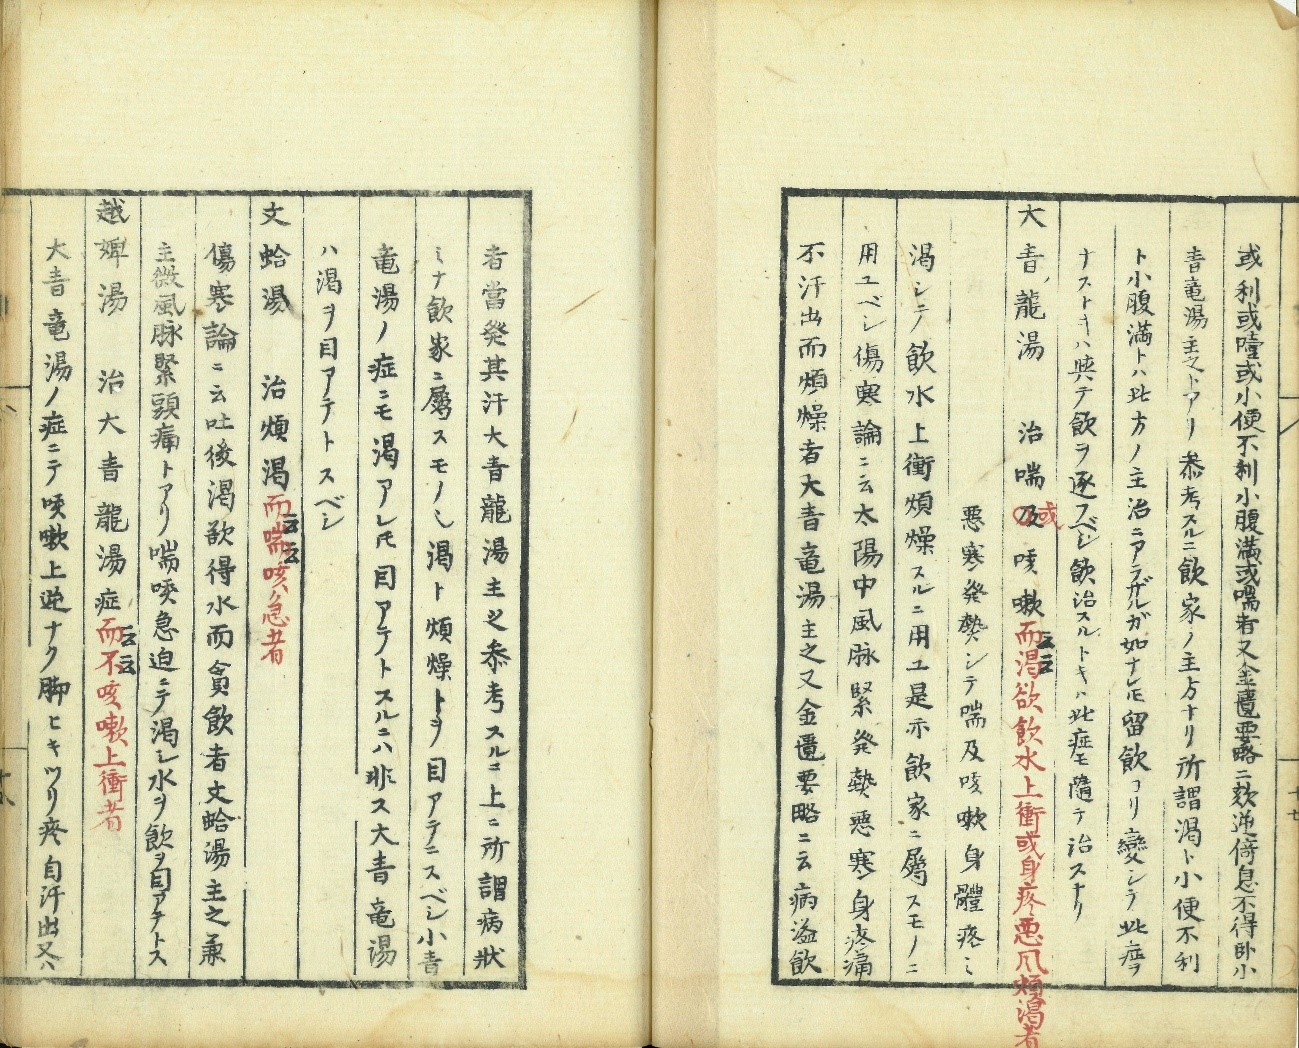 或利或噎或小便不利小腹満或喘者又金匱要略ニ欬逆倚息不得卧小
青竜湯主之トアリ参考スルニ飲家ノ主方ナリ所謂渇ト小便不利
ト小腹満トハ此方ノ主治ニアラザルガ如ナレ𪜈留飲コリ變シテ此症ヲ
ナストキハ與テ飲ヲ逐フベシ飲治スルトキハ此症モ隨テ治スナリ
大青龍湯 治喘及或咳嗽云云而渇欲飲水上衝或身疼悪風煩渇者
悪寒発熱シテ喘及咳嗽身體疼ミ
渇シテ飲水上衝煩燥スルニ用ユ是亦飲家ニ属スモノニ
用ユベシ傷寒論ニ云太陽中風脉緊発熱悪寒身疼痛
不汗出而煩燥者大青竜湯主之又金匱要略ニ云病溢飲
者當発其汗大青龍湯主之参考スルニ上ニ所謂病状
ミナ飲家ニ属スモノシ渇ト煩燥トヲ目アテニスベシ小青
竜湯ノ症ニモ渇アレ𪜈目アテトスルニハ非ス大青竜湯
ハ渇ヲ目アテトスベシ
文蛤湯 治煩渇云云而喘咳急者
傷寒論ニ云吐後渇欲得水而貪飲者文蛤湯主之兼
主微風脉緊頭痛トアリ喘咳急迫ニテ渇シ水ヲ飲ヲ目アテトス
越婢湯 治大青龍湯症云云而不咳嗽上衝者
大青竜湯ノ症ニテ咳嗽上逆ナク脚ヒキツリ疼自汗出又ハ
十七